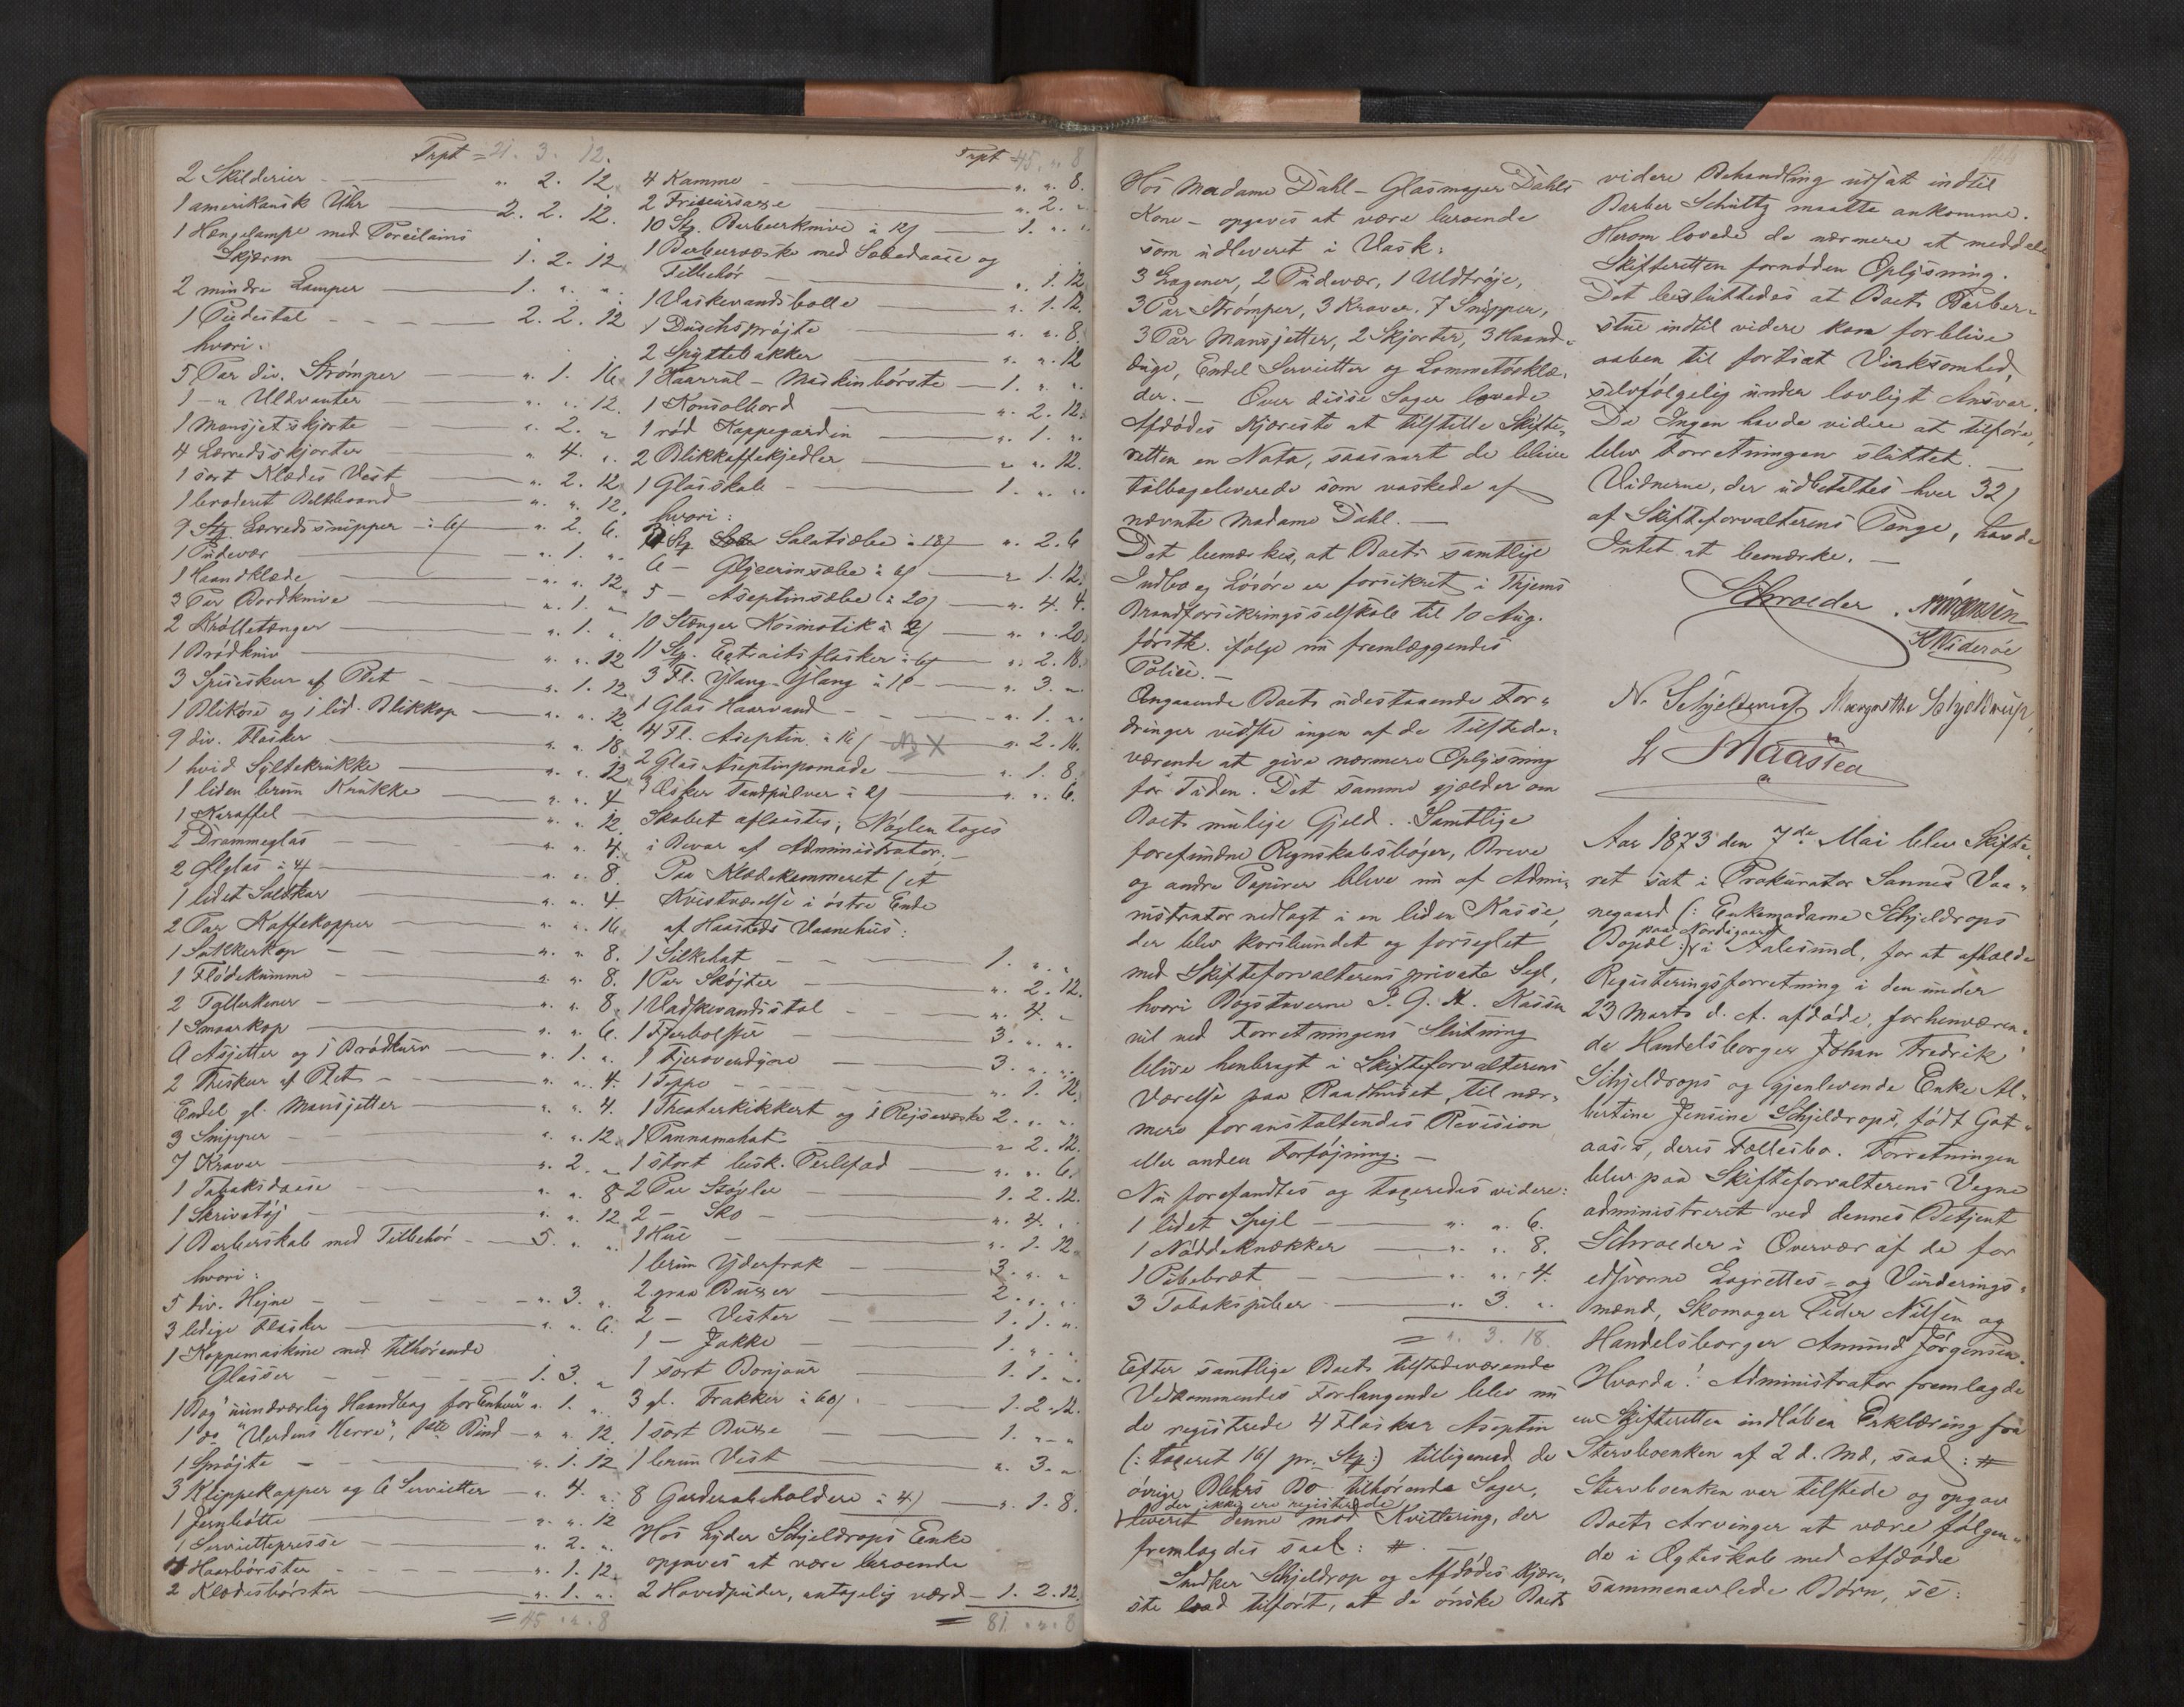 Trpt = 21. 3. 12.
2 Skilderier - " 2. 12.
1 amerikansk Uhr - 2. 2. 12.
1 Hængelampe med Porcilains
Skjærm - 1. 2. 12
2 mindre Lamper - 1. " "
1 Piedestal - 2. 2. 12
hvori:
5 Par div. Strømper - " 1. 16
1 - " Uldvanter - " " 12.
1 Mansjetskjorte - " 2. "
4 Lærredsskjorter - " 4. "
1 sort Klædes Vest - " 2. 12
1 broderet Beltebaand - " " 12.
9 Stk Lærredssnipper à 6 s - " 2. 6.
1 Pudevær - " 1. "
1 Haandklæde - " " 12.
3 Par Bordknive - " 1. "
2 Krølletænger - " 1. "
1 Brødkniv - " " 12
3 Spiseskeer af Plet - " 1. 12
1 Blikøse og 1 lid. Blikkop - " " 12.
9 div. Flasker - " " 18.
1 hvid Syltekrukke - " " 12
1 liden brun Krukke - " " 4
1 Karaffel - " " 12.
2 Drammeglas - " " 4.
2 Ølglas à 4 - " " 8.
1 lidet Saltkar - " " 4.
2 Par Kaffekopper - " " 16
1 Sukkerkop - " " 8.
1 Flødekumme - " " 8.
2 Tællerkener - " " 8.
1 Smaarkop - " " 6.
6 Asjetter og 1 Brødkurv - " 1. "
2 Theskeer af Plet - " " 4.
Endel gl. Mansjetter - " " 4.
3 Snipper - " " 12.
7 Kraver - " 2. "
1 Tobaksdaase - " " 8
1 Skrivetøj - " " 12
1 Barberskab med Tilbehør - 5. " "
hvori:
5 div. Hejne - " 3. "
3 ledige Flasker - " " 6.
1 Koppemaskine med tilhørende
Glasser - 1. 3. "
1 Bog "uundværlig Haandbog for Enhver" " 1. "
1 do "Verdens Herre", 1ste Bind - " " 12.
1 Sprøjte - " 1. 12
3 Klippekapper og 6 Servietter - " 4. "
1 Jernbøtte - " " 12
1 Serviettepresse - " 2. "
4 Haarbørster - " 1. 12
2 Klædesbørster - " 1. "
= 45. " 8
Trpt = 45. " 8
4 Kamme - " " 8.
2 Friseursaxe - " 2. "
10 Stk. Barbeerknive à 12 s - 1. " "
1 Barbeervæske med Sæbedaase og
Tilbehør - " 1. 12
1 Vaskevandsbolle - " 1. 12.
1 Duschsprøjte - " " 8.
2 Spyttebakker - " " 12
1 Haarrul-Maskinbørste - 1. " "
1 Konsolbord - " 2. 12.
1 rød Kappegardin - " 1. "
2 Blikkaffekjedler - " " 12.
1 Glasskab - 1. " "
hvori:
3 Stk Salatsæbe à 18 s - " 2. 6
6 - Glycerinsæbe à 6 s - " 1. 12.
5 - Aseptinsæbe à 20 s - " 4. 4.
10 Stænger Kosmetik à 2 s - " " 20.
11 Stk. Extraitsflasker à 6 s - " 2. 18.
3 Fl. Ylang-Ylang à 1 - " 3. "
1 Glas Haarvand - " 1. "
4 Fl. Aseptin à 16 s NB X " 2. 16.
2 Glas Aseptinpomade - " 1. 8.
3 Æsker Tandpulver à 2 s - " " 6.
Skabet aflaastes, Nøglen toges
i Bevar af Administrator. -
Paa Klædekammeret (et
Kvistværelse i østre Ende
af Haasteds Vaanehus:
1 Silkehat - 1. " "
1 Par Skøjter - " 2. 12.
1 Vadskevandsstol - " 4. "
1 Fjerbolster - 3. " "
1 Fjeroverdyne - 3. " "
1 Teppe - " 1. 12.
1 Theaterkikkert og 1 Rejsevæske 2. " "
1 Pannamahat - " 2. 12.
1 stort lusk. Perlefad - " " 6.
2 Par Støvler - 1. 2. 12.
2 - Sko - " 4. "
1 Hue - " 1. 12
1 brun Yderfrak - 3. " "
2 graa Buxer - 2. " "
2 - Vester - 1. 1. "
1 - Jakke - 1. " "
1 sort Bonjour - 1. 1. "
3 gl. Frakker à 60 s - 1. 2. 12.
1 sort Buxe - 1. " "
1 brun Vest - " 3. "
8 Garderobeholdere à 4 s - " 1. 8.
Hos Lyder Schjeldrops Enke
opgaves at være beroende
2 Hovedpuder, antagelig værd - 1. 2. 12.
= 81. " 8
Hos Madame Dahl - Glasmager Dahls
Kone - opgaves at være beroende
som udleveret i Vask:
3 Lagener, 2 Pudevær, 1 Uldtrøje,
3 Par Strømper, 3 Kraver, 7 Snipper,
3 Par Mansjetter, 2 Skjorter, 3 Haand-
duge, Endel Servietter og Lommetørklæ-
der. - Over disse Sager lovede
Afdødes Kjæreste at tilstille Skifte-
retten en Nota, saasnart de bleve
tilbageleverede som vaskede af
nævnte Madame Dahl. -
Det bemærkes, at Boets samtlige
Indbo og Løsøre er forsikret i Thjems
Brandforsikringsselskab til 10 Aug.
førstk. ifølge nu fremlæggendes
Police. -
Angaaende Boets udestaaende For-
dringer vidste ingen af de Tilstede-
værende at give nærmere Oplysning
for Tiden. Det samme gjælder om
Boets mulige Gjeld. Samtlige
forefundne Regnskabsbøger, Breve
og andre Papirer bleve nu af Admi-
nistrator nedlagt i en liden Kasse,
der blev korsbundet og forseglet
med Skifteforvalterens private Segl,
hvori Bogstaverne I. G. K. Kassen
vil ved Forretningens Slutning
blive henbragt i Skifteforvalterens
Værelse paa Raadhuset, til nær-
mere foranstaltendes Revision
eller anden Forføjning. -
Nu forefandtes og taxeredes videre:
1 lidet Spejl - " " 6.
1 Nøddeknækker - " " 8.
1 Pibebræt - " " 4.
3 Tobakspiber - " 3. "
= " 3. 18.
Efter samtlige Boets tilstedeværende
Vedkommendes Forlangende blev nu
de registrede 4 Flasker Aseptin
(: taxeret 16 s pr. Stk:) tilligemed de
øvrige Blehrs Bo tilhørende Sager,
der ikke ere registrerede
leveret denne mod Kvittering, der
fremlagdes saal: #
Snedker Schjeldrop og Afdødes Kjære-
ste bad tilført, at de ønske Boets
144
videre Behandling udsat indtil
Barber Schültz maatte ankomme.
Herom lovede de nærmere at meddele
Skifteretten fornøden Oplysning.
Det besluttedes at Boets Barber-
stue indtil videre kan forblive
aaben til fortsat Virksomhed,
selvfølgelig under lovligt Ansvar.
Da Ingen havde videre at tilføre,
blev Forretningen sluttet. -
Vidnerne, der udbetaltes hver 32 s
af Skifteforvalterens Penge, havde
Intet at bemærke. -
Schroeder
K Widerøe
N. Schjelderup Margrethe Schjeldrup
L Maasøea
Aar 1873 den 7de Mai blev Skifte-
ret sat i Prokurator Sannes Vaa-
negaard (: Enkemadame Schjeldrops
paa Nordigaard
Bopæl:) i Aalesund, for at afholde
Registeringsforretning i den under
23 Marts d. A. afdøde, forhenværen-
de Handelsborger Johan Fredrik
Schjeldrops og gjenlevende Enke Al-
bertine Jensine Schjeldrops, født Got-
aas's, deres Fællesbo. Forretningen
blev paa Skifteforvalterens Vegne
administreret ved dennes Betjent
Schroeder i Overvær af de for
edsvorne Lagrettes- og Vurderings-
mænd, Skomager Peder Nilsen og
Handelsborger Amund Jørgensen.
Hvorda! Administrator fremlagde
en Skifteretten indløben Erklæring fra
Stervboenken af 2 d. Md, saal: #
Stervboenken var tilstede og opgav
Boets Arvinger at være følgen-
de i Ægteskab med Afdøde
sammenavlede Børn, se: